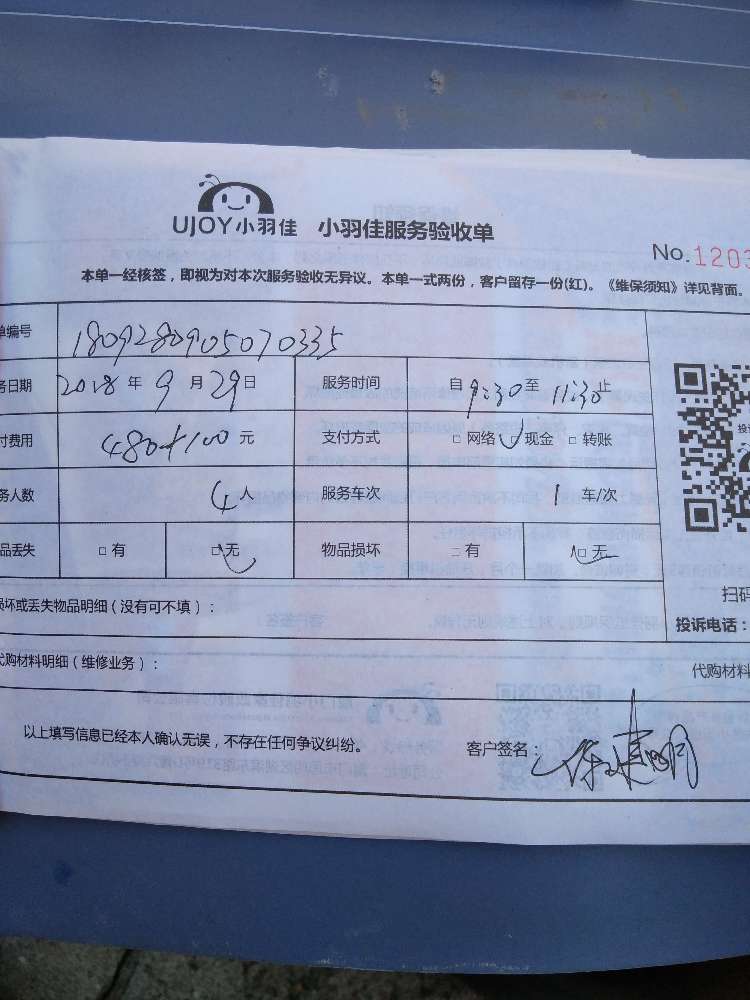 UJOY小羽佳 小羽佳服务验收单
No.1203
本单一经核签，即视为对本次服务验收无异议。本单一式两份，客户留存一份(红)。《维保须知》详见背面。
单编号 1809280905070335
务日期 2018 年 9 月 29 日 服务时间 自 9:30 至 11:30 止
付费用 480+100 元 支付方式 □ 网络 □ 现金 □ 转账
务人数 4 人 服务车次 1 车/次
品丢失 □ 有 □ 无 物品损坏 □ 有 □ 无
扫码
损坏或丢失物品明细（没有可不填）：
投诉电话：
代购材料明细（维修业务）：
代购材料
以上填写信息已经本人确认无误，不存在任何争议纠纷。
客户签名：